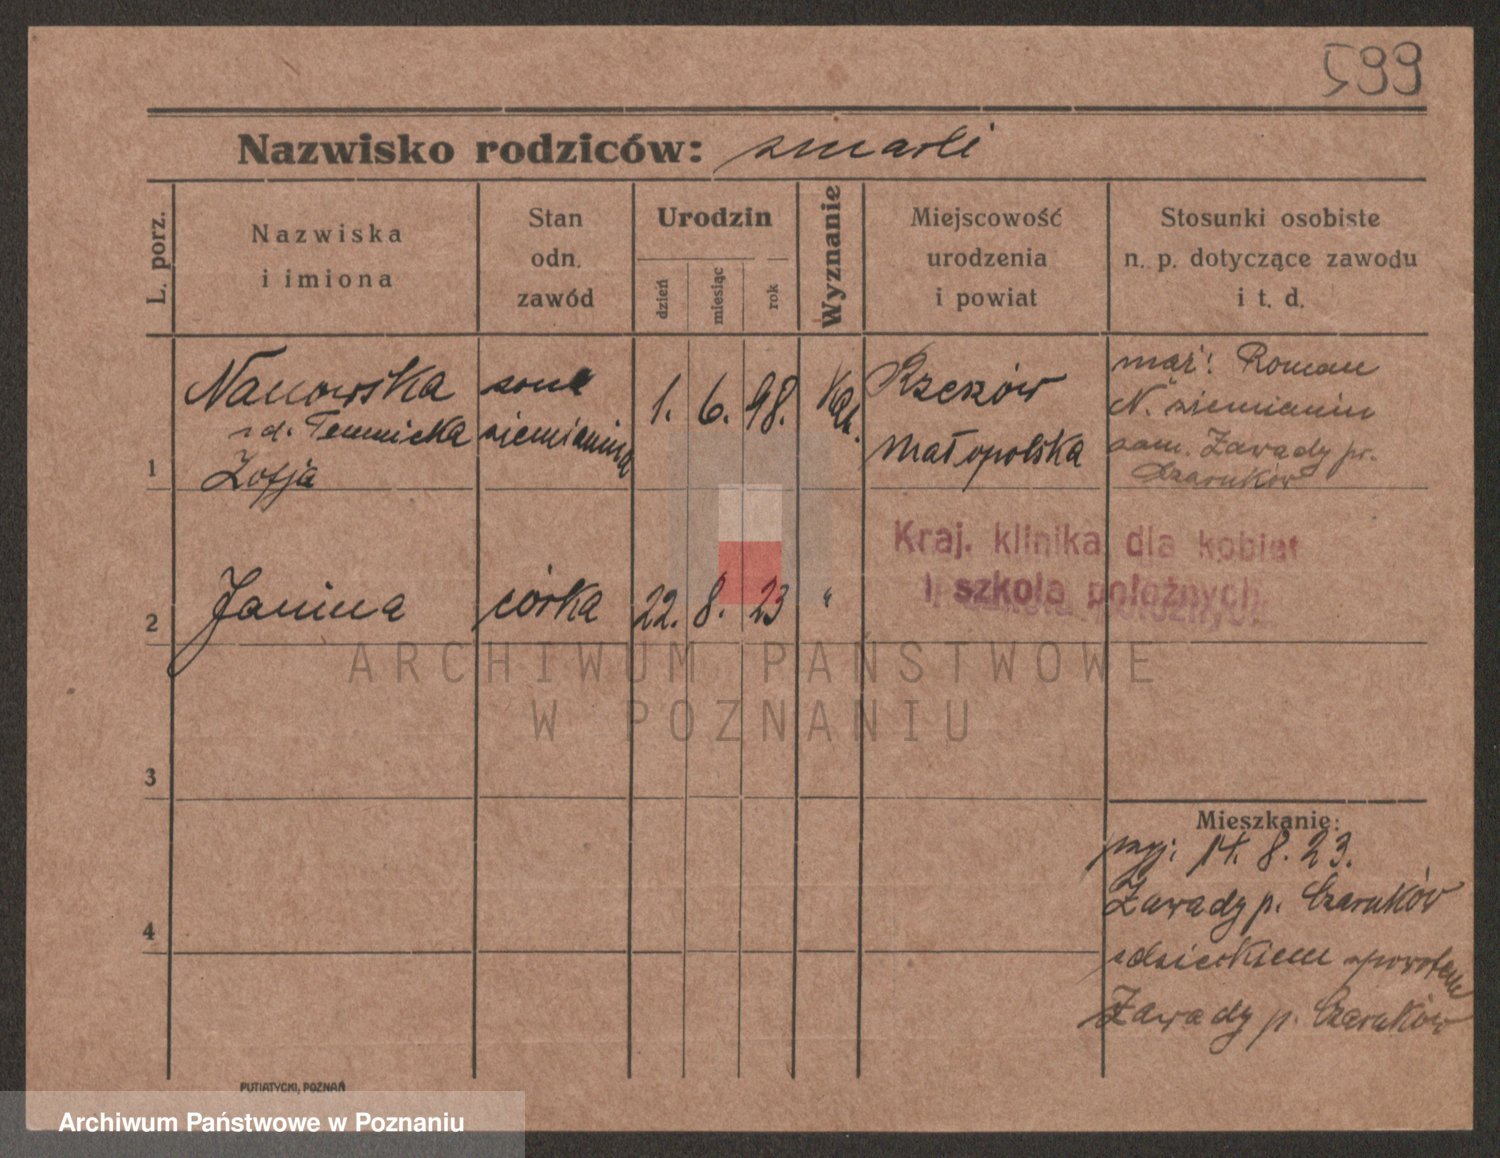 599
Nazwisko rodziców: zmarli
L. porz.
Nazwiska
i imiona
Stan
odn.
zawód
Urodzin
dzień
miesiąc
rok
Wyznanie
Miejscowość
urodzenia
i powiat
Stosunki osobiste
n. p. dotyczące zawodu
i t. d.
1
Nanowska
zd.
Zofja
żona
ziemianina
1. 6. 98.
Kat.
Rzeszów
Małopolska
mąż: Roman
N. ziemianin
zam. Zawady pr.
Czarnków
Kraj. klinika dla kobiet
i szkoła położnych.
2
Janina
córka
22. 8. 23
"
ARCHIWUM PAŃSTWOWE
W POZNANIU
3
4
Mieszkanie:
przyj. 14. 8. 23.
Zawady p. Czarnków
z dzieckiem zpowrotem
Zawady p. Czarnków
PUTIATYCKI, POZNAŃ
Archiwum Państwowe w Poznaniu